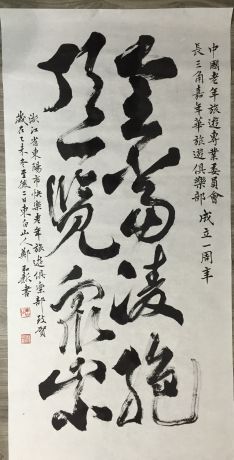 中國老年旅遊專業委員會
長三角嘉年華旅遊俱樂部 成立一周年
會當凌絕
頂一覽眾山小
浙江省東陽市快樂老年旅遊俱樂部致賀
歲在乙未冬至後二日東白山人鄭
書